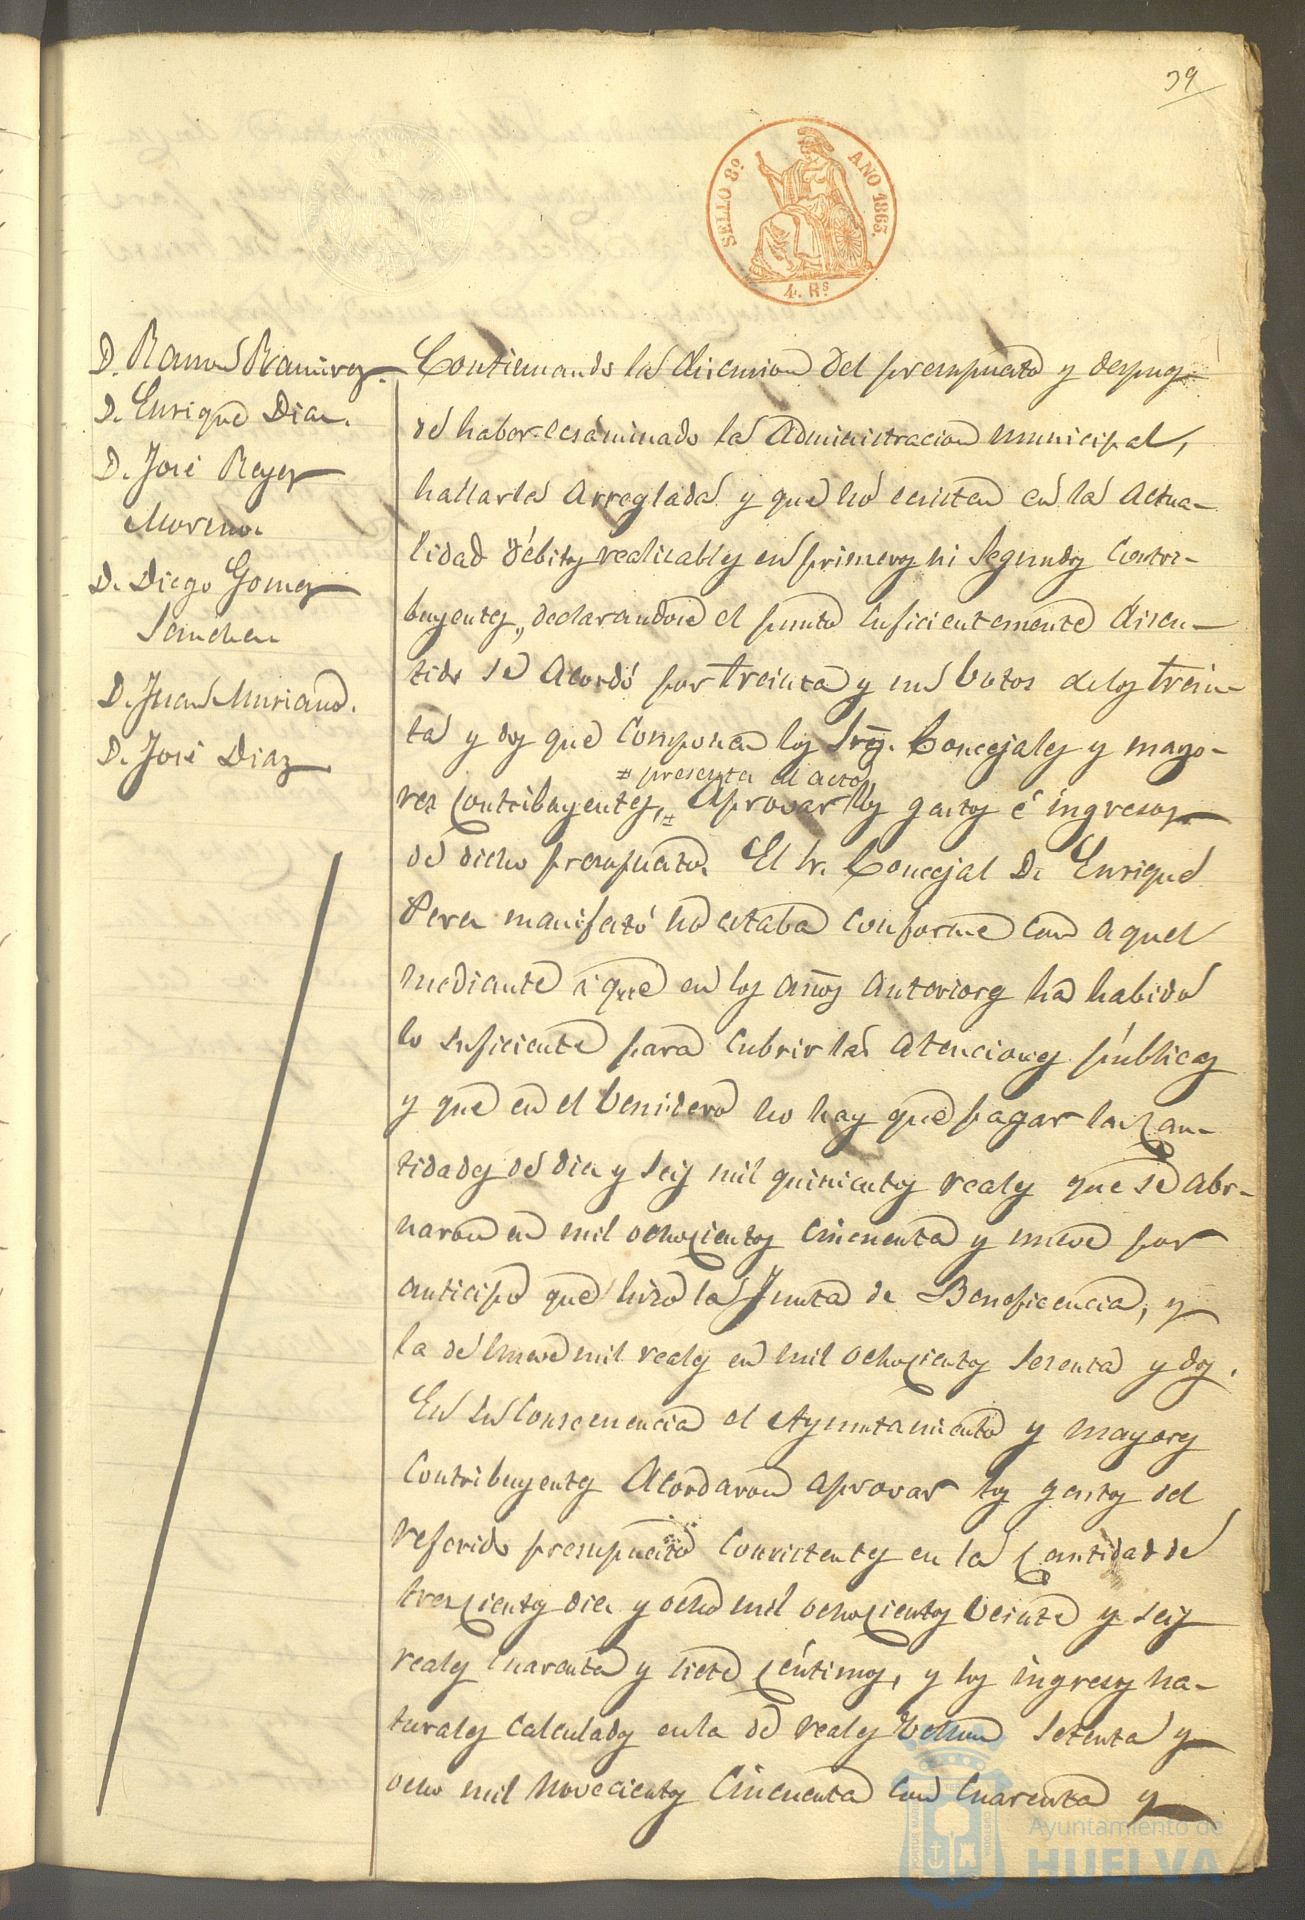 39
SELLO 8º AÑO 1863.
4. Rs
D. Ramon Ramirez.
D. Enrique Diaz.
D. José Reyes
Moreno.
D. Diego Gomez
Sanchez
D. Juan Muriano.
D. José Diaz
Continuando la discusion del presupuesto y despues
de haber ecsaminado la administracion municipal,
hallarla arreglada y que no ecsisten en la actua-
lidad débitos realizables en primeros ni segundos contri-
buyentes, declarandose el punto suficientemente discu-
tido se acordó por treinta y un votos de los trein-
ta y dos que componen los Sres. Concejales y mayo-
# presentes al acto
res contribuyentes, # aprovar los gastos é ingresos
de dicho presupuesto. El Sr. Concejal D. Enrique
Perez manifestó no estaba conforme con aquel
mediante á que en los años anteriores ha habido
lo suficiente para cubrir las atenciones públicas
y que en el venidero no hay que pagar las can-
tidades de diez y seis mil quinientos reales que se abo-
naron en mil ochocientos cincuenta y nueve por
anticipo que hizo la Junta de Beneficencia, y
la de nueve mil reales en mil ochocientos sesenta y dos.
En su consecuencia el Ayuntamiento y mayores
contribuyentes acordaron aprovar los gastos del
referido presupuesto consistentes en la cantidad de
trescientos diez y ocho mil ochocientos veinte y seis
reales cuarenta y siete céntimos, y los ingresos na-
turales calculados en la de reales vellon setenta y
ocho mil novecientos cincuenta con cuarenta y
Ayuntamiento de
HUELVA